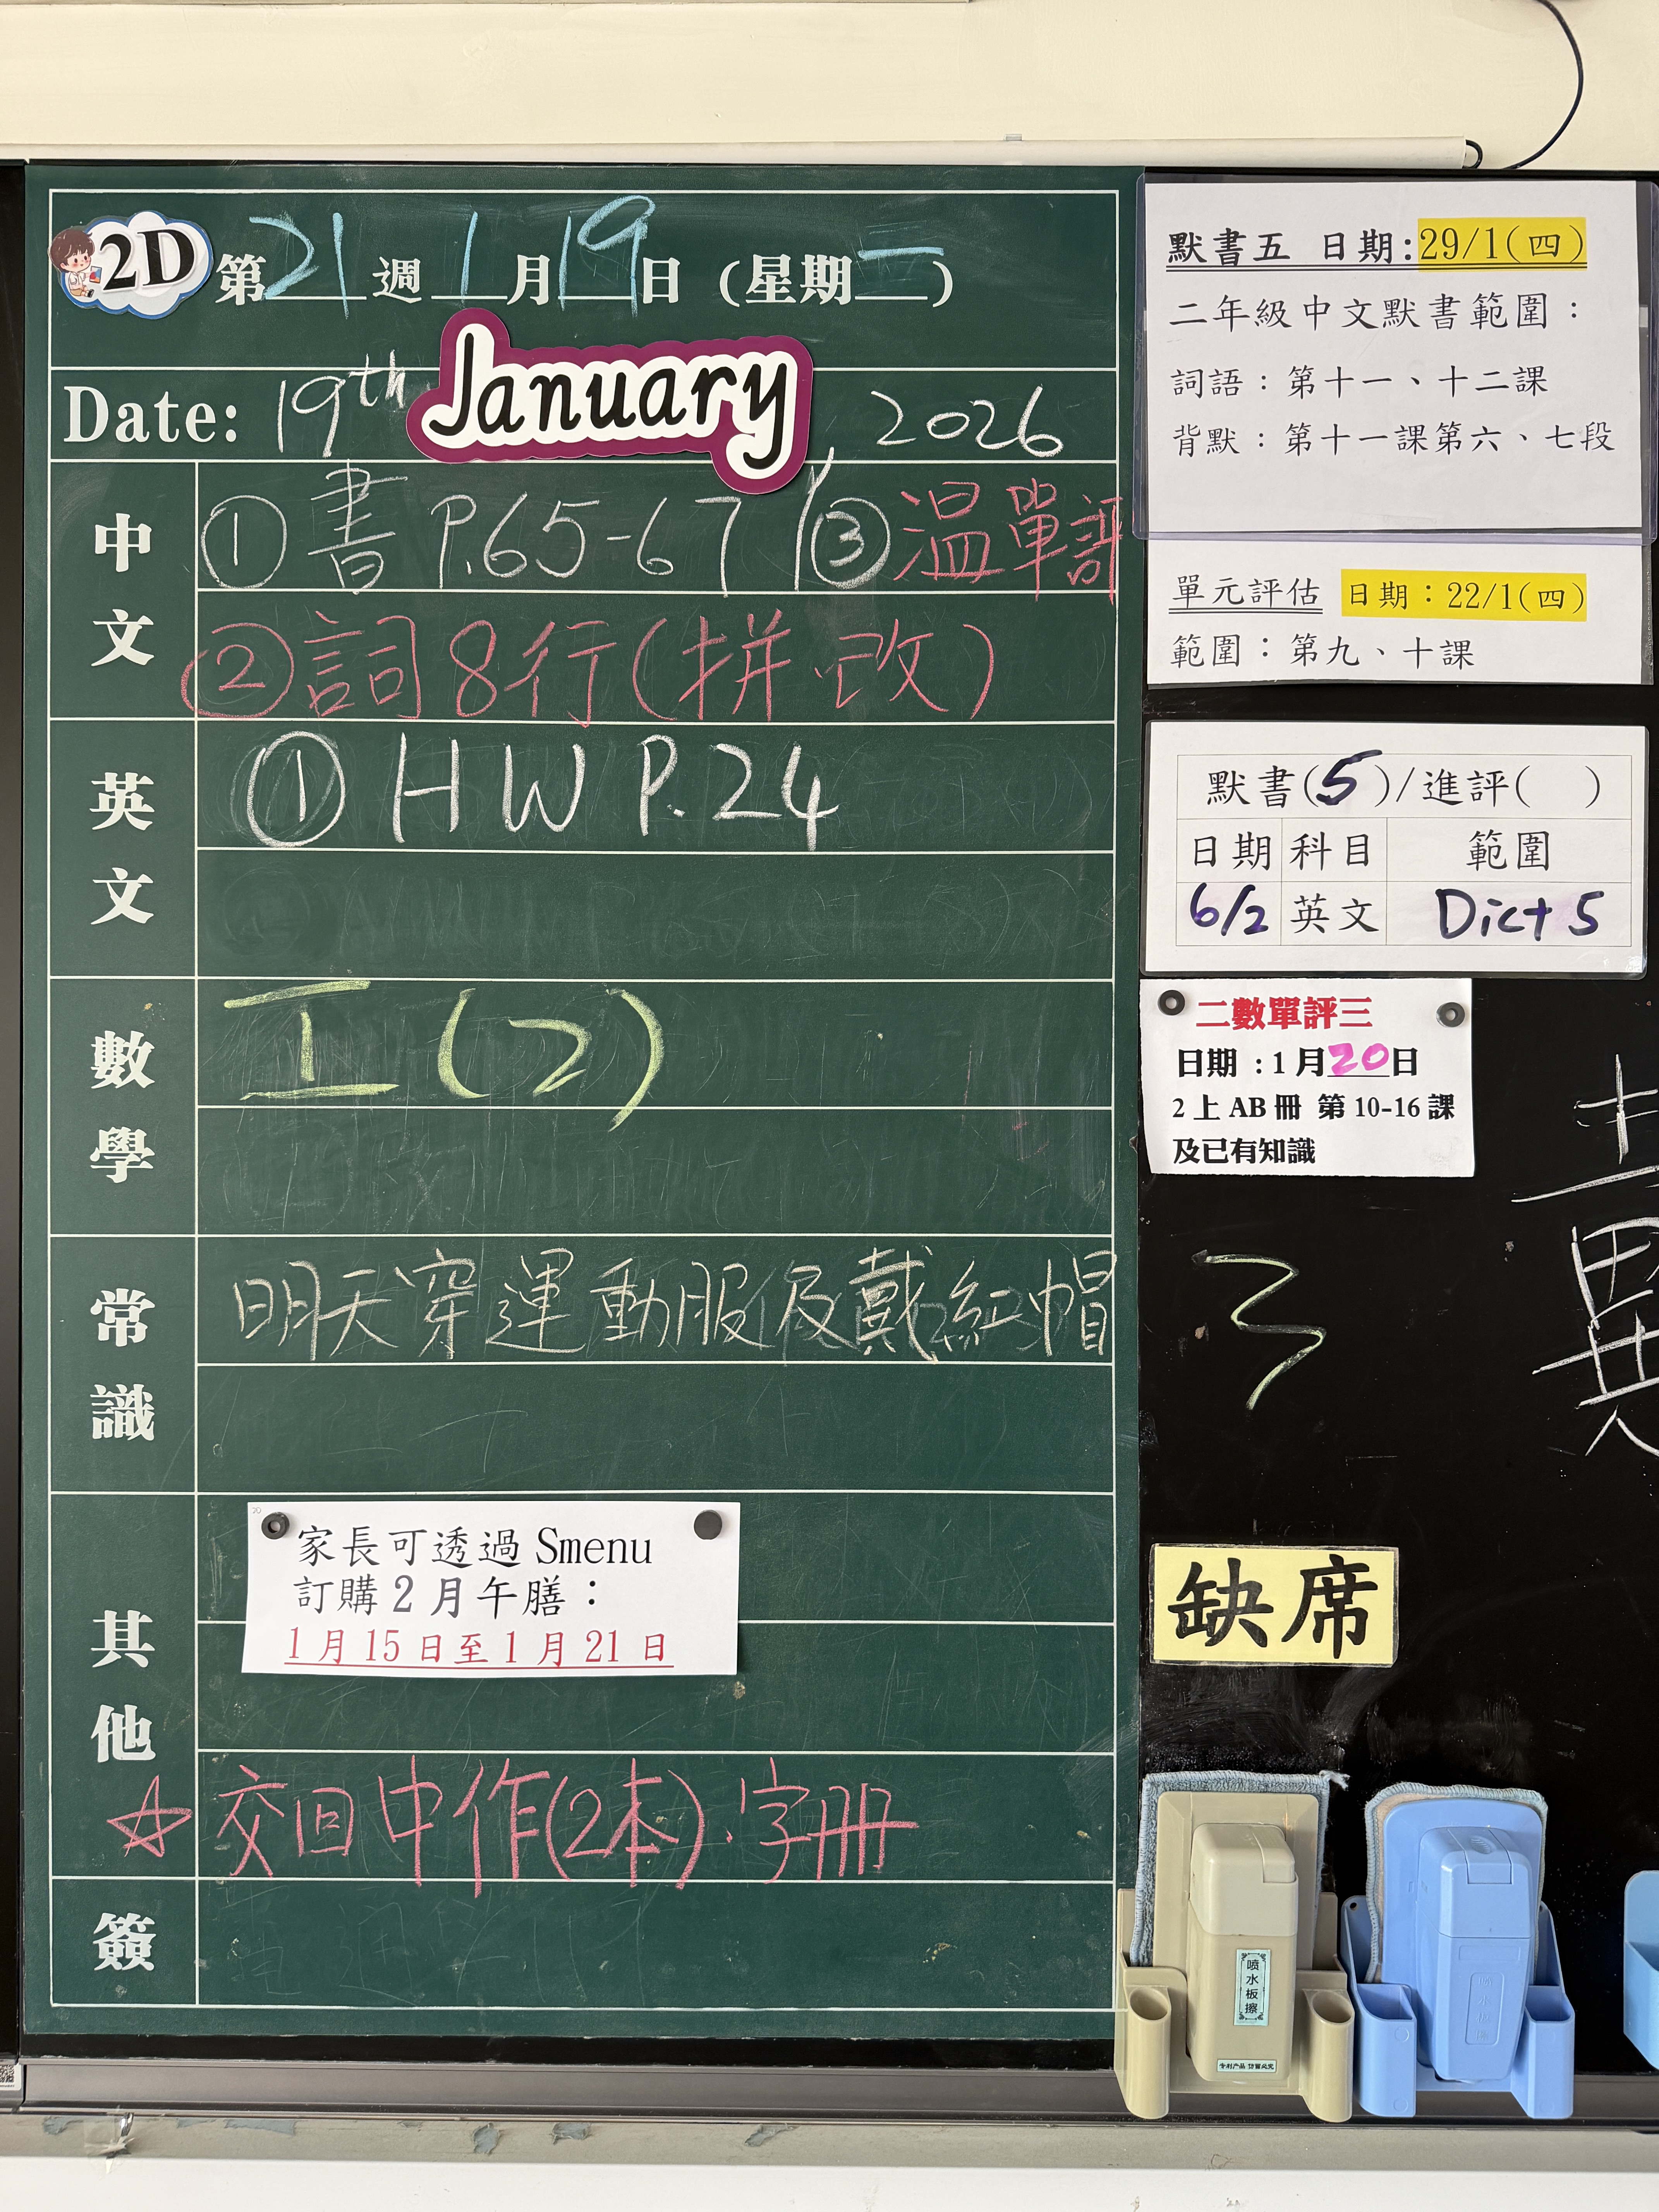 2D 第21週1月19日 (星期一)
Date: 19th January, 2026
中文
① 書 P.65-67 ③温單評
② 詞8行(拼.改)
英文
① HW P.24
數學
工(2)
常識
明天穿運動服及戴紅帽
其他
家長可透過 Smenu
訂購2月午膳：
1月15日至1月21日
☆ 交回中作(2本).字冊
簽
默書五 日期:29/1(四)
二年級中文默書範圍：
詞語：第十一、十二課
背默：第十一課第六、七段
單元評估 日期：22/1(四)
範圍：第九、十課
默書(5)/進評( )
日期 科目 範圍
6/2 英文 Dict 5
二數單評三
日期 :1月20日
2上AB冊 第10-16課
及已有知識
缺席
喷水板擦
专利产品 仿冒必究